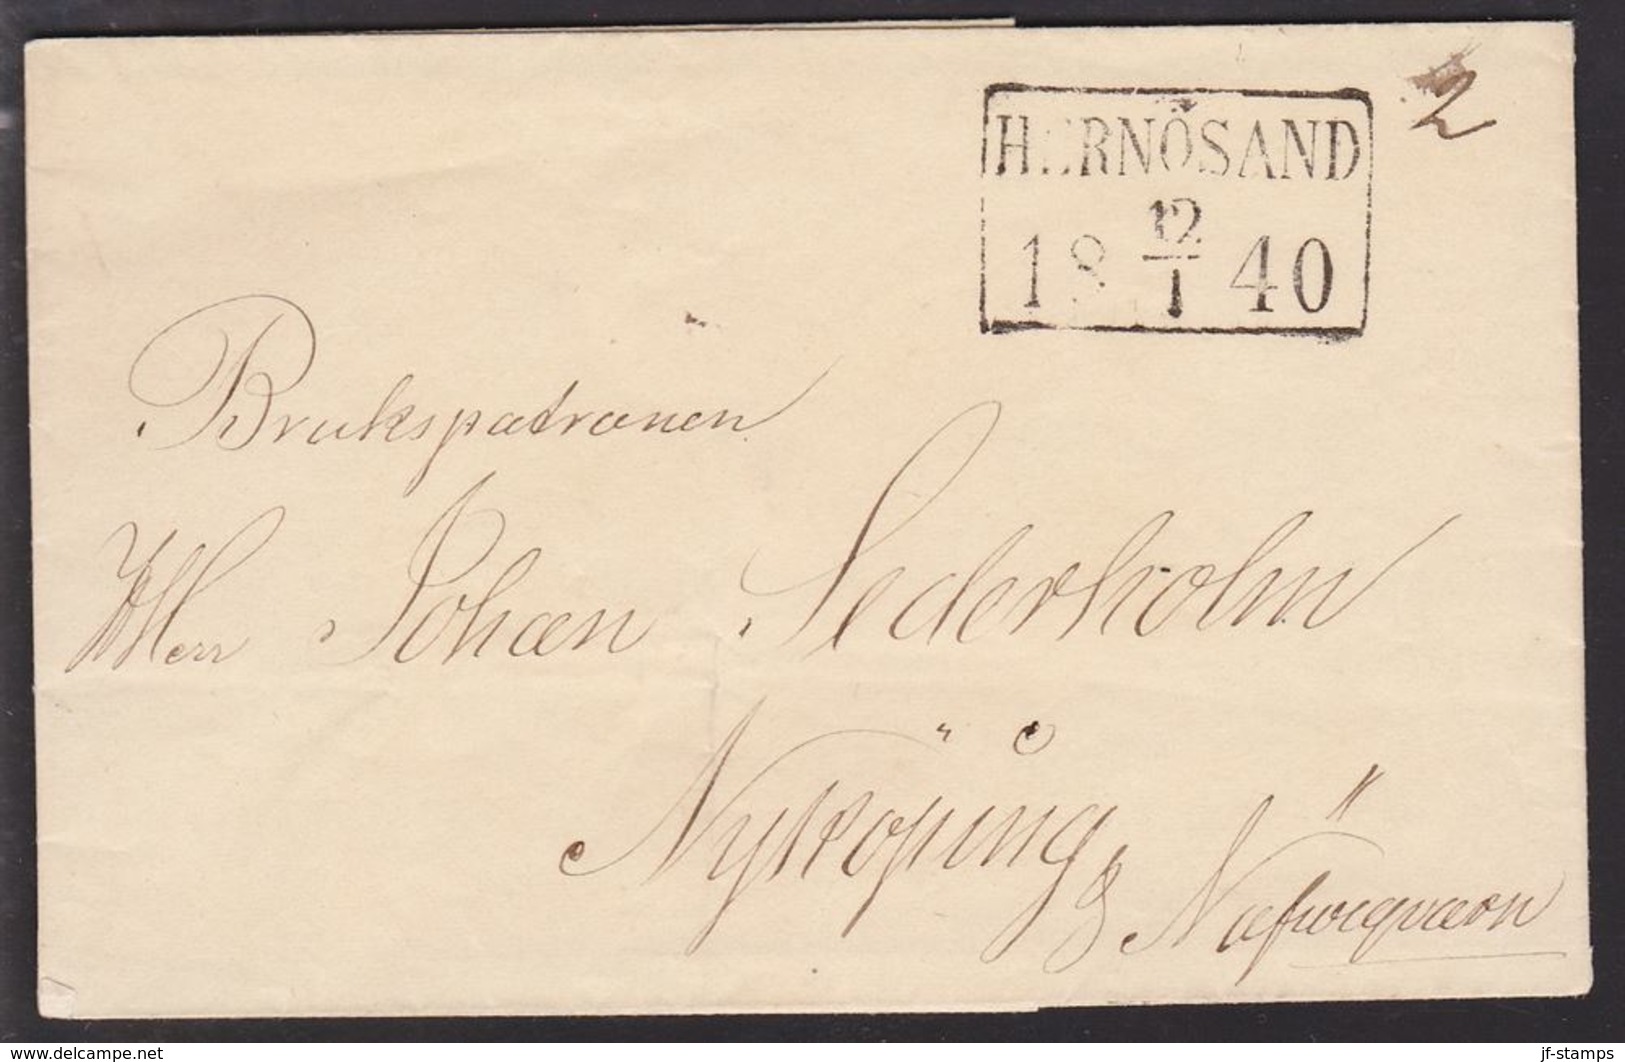 HERNÖSAND
2
12
18 1 40
Brukspatronen
Herr Johan Sederholm
Nyköping & Näfveqvarn
www.delcampe.net
jf-stamps